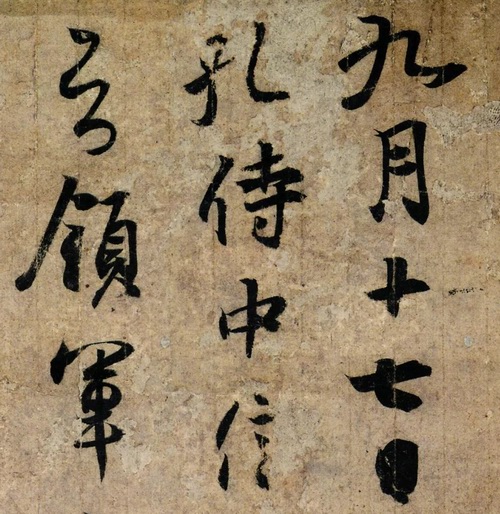 九月十七日
孔侍中信
知領軍